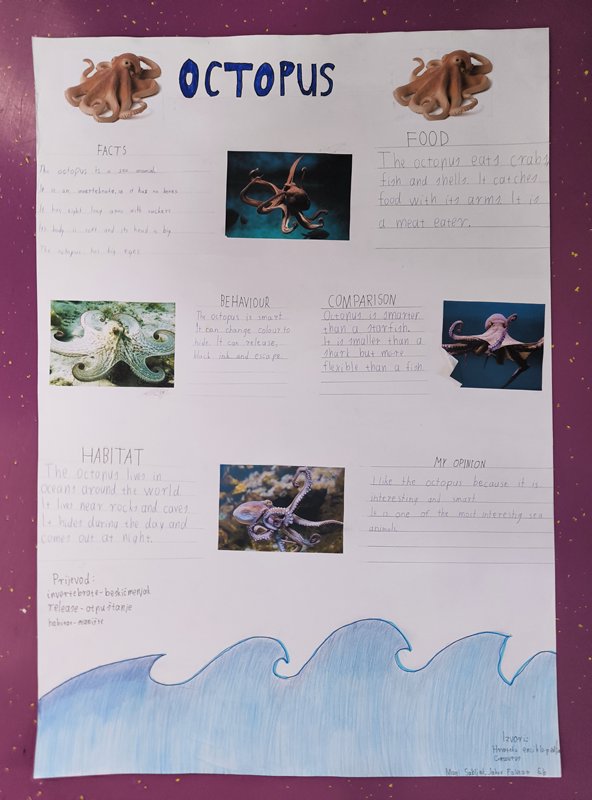 OCTOPUS
FACTS
The octopus is a sea animal.
It is an invertebrate, so it has no bones.
It has eight long arms with suckers.
Its body is soft and its head is big.
The octopus has big eyes.
FOOD
The octopus eats crabs
fish and shells. It catches
food with its arms. It is
a meat eater.
BEHAVIOUR
The octopus is smart.
It can change colour to
hide. It can release,
black ink and escape.
COMPARISON
Octopus is smarter
than a starfish.
It is smaller than a
shark but more
flexible than a fish.
HABITAT
The octopus lives in
oceans around the world.
It live near rocks and caves.
It hides during the day and
comes out at night.
MY OPINION
I like the octopus because it is
interesting and smart.
It is one of the most interestig sea
animals.
Prijevod:
invertebrate-beskičmenjak
release-otpuštanje
habitat-
Izvori:
Hrvatska enciklopedija